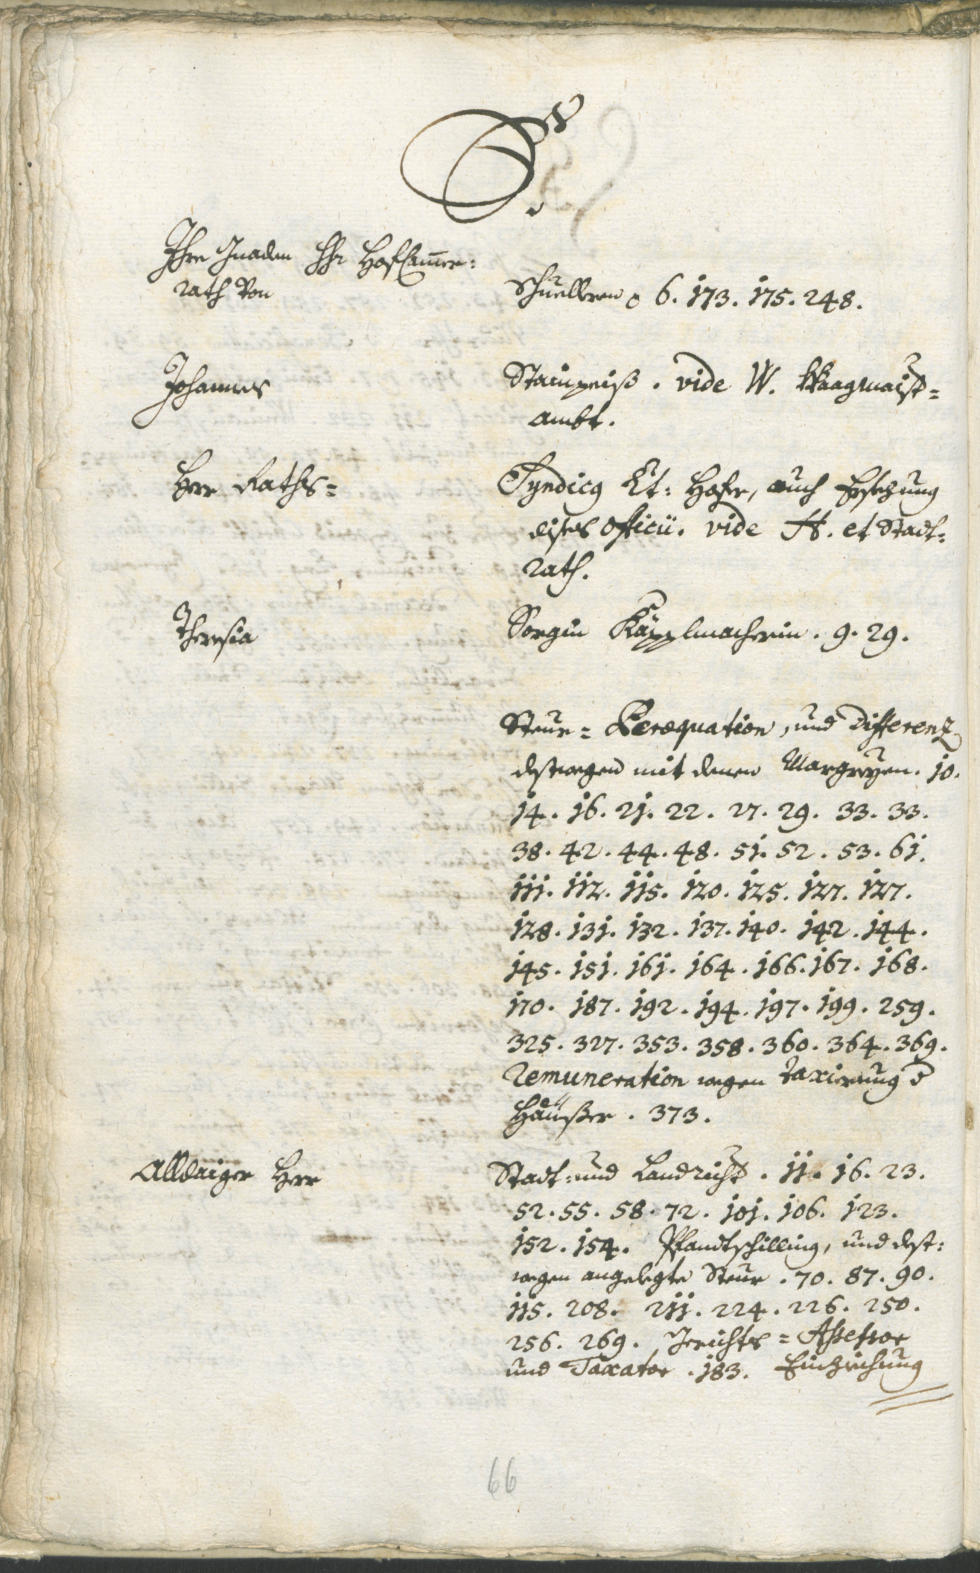 S.
Ihre Gnaden Hr Hofcam̅er:
rath Von
Schuellern 6. 173. 175. 248.
Johannes
Staupniß. vide W. Waagmaist=
ambt.
Herr Raths=
Syndicg Et: Hofer, auch Ersezung
dises officii. vide H. et Stadt=
rath.
Theresia
Sorgin Käpplmacherin. 9. 29.
Steur= Peræquation, und Differenz
destwegen mit denen Margreyen. 10.
14. 16. 21. 22. 27. 29. 33. 33.
38. 42. 44. 48. 51. 52. 53. 61.
111. 112. 115. 120. 125. 127. 127.
128. 131. 132. 137. 140. 142. 144.
145. 151. 161. 164. 166. 167. 168.
170. 187. 192. 194. 197. 199. 259.
325. 327. 353. 358. 360. 364. 369.
Remuneration wegen taxierung d
Häußer. 373.
Alldaiger Herr
Stadt: und Landricht. 11. 16. 23.
52. 55. 58. 72. 101. 106. 123.
152. 154. Pfandtschilling, und dest:
wegen angelegte Steur. 70. 87. 90.
115. 208. 211. 224. 226. 250.
256. 269. Gerichts= Assessor
und Taxator. 183. Einziehung
66